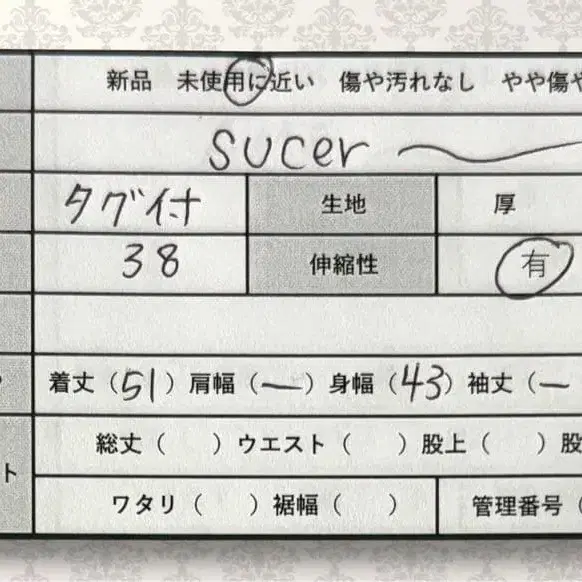 新品 未使用に近い 傷や汚れなし やや傷や
sucer
タグ付 生地 厚
38 伸縮性 有
着丈(51)肩幅(ー)身幅(43)袖丈(ー
総丈( )ウエスト( )股上( )股
ト
ワタリ( )裾幅( ) 管理番号(